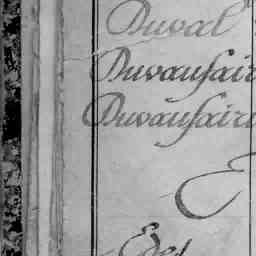 Duval
Duvausair
Duvausaire
E
Edes